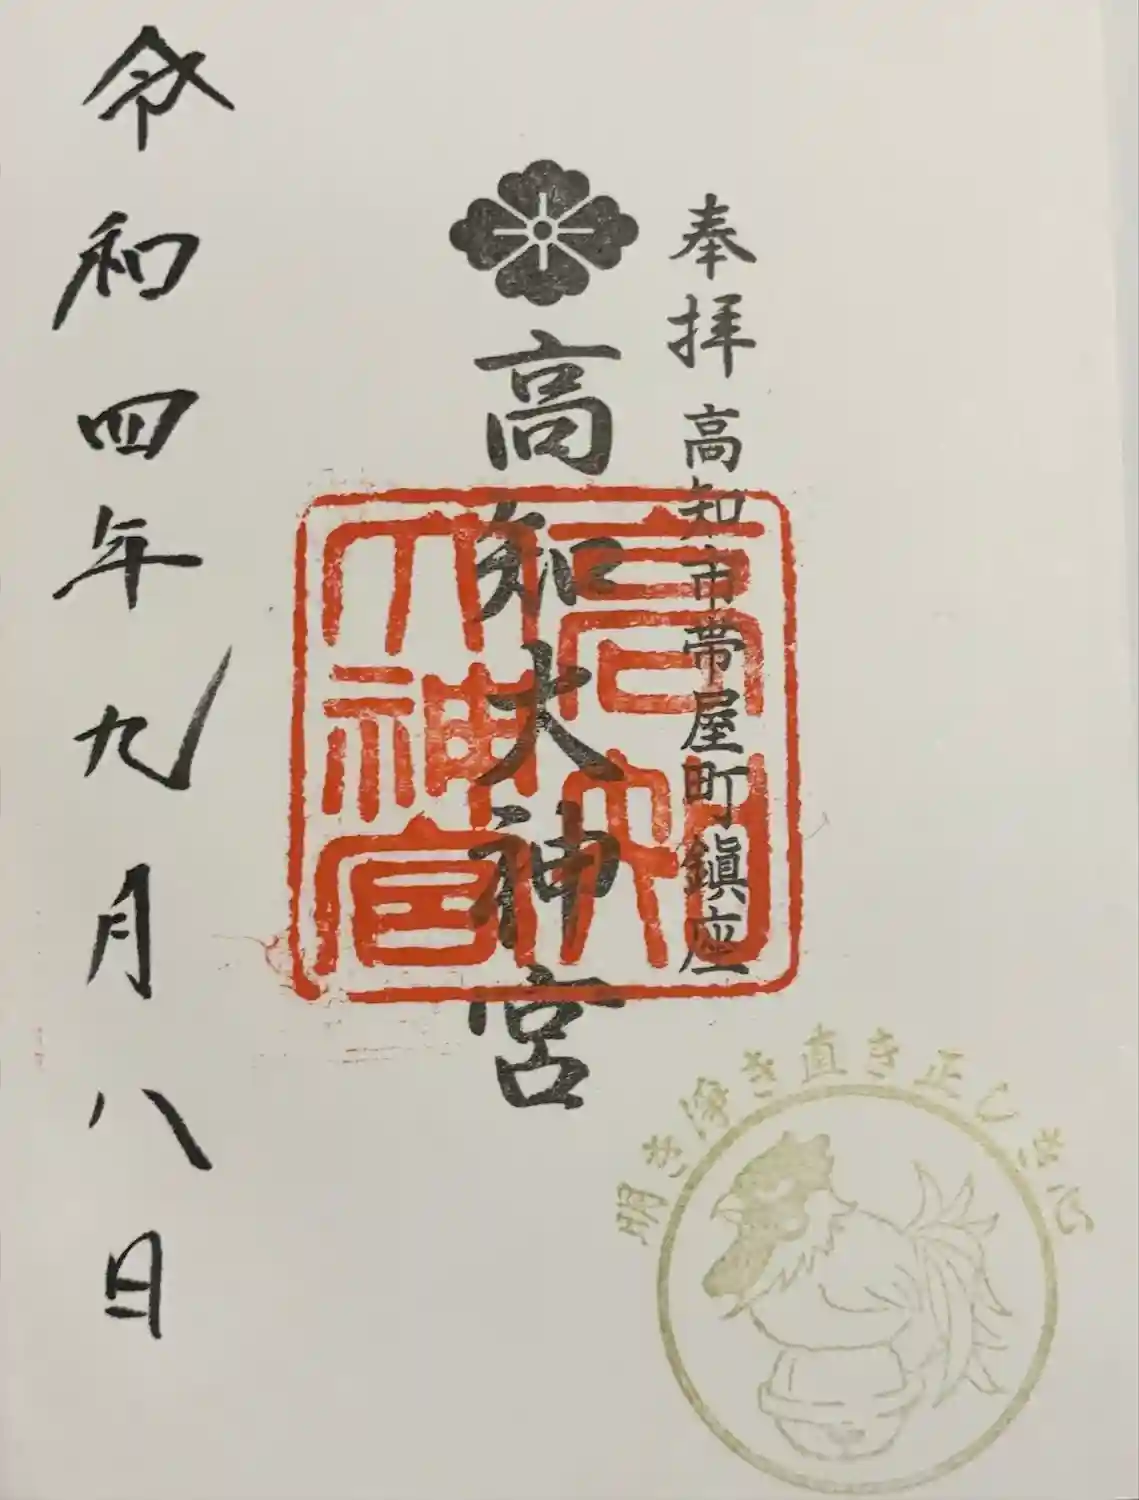 奉拝 高知市帯屋町鎮座
高知大神宮
高知大神宮
令和四年九月八日
明き浄き直き正しき心